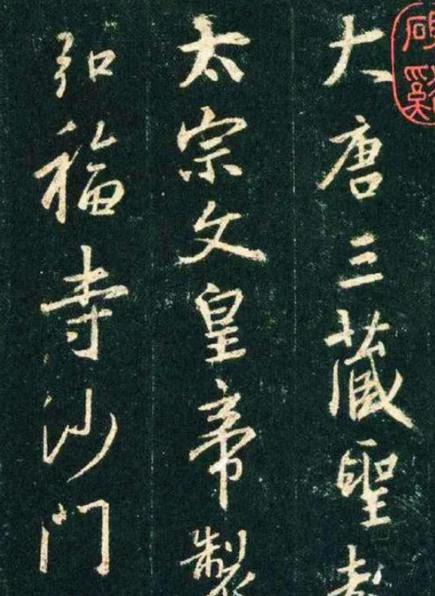 大唐三藏聖教
太宗文皇帝製
弘福寺沙門